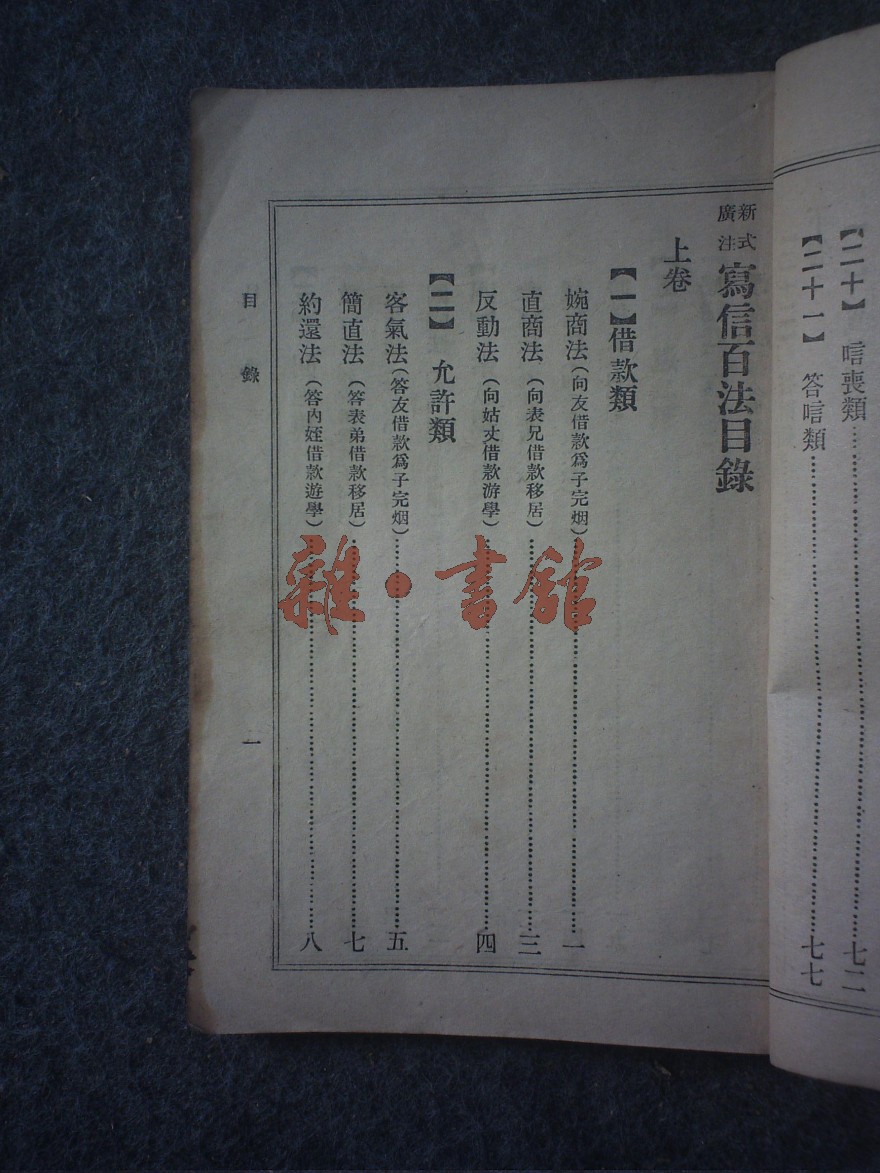 【二十】 唁喪類……七二
【二十一】 答唁類……七七
新式廣注寫信百法目錄
上卷
【一】借款類
婉商法(向友借款爲子完烟)……一
直商法(向表兄借款移居)……三
反動法(向姑丈借款游學)……四
【二】 允許類
客氣法(答友借款爲子完烟)……五
簡直法(答表弟借款移居)……七
約還法(答內姪借款遊學)……八
目錄
一
雜·書館